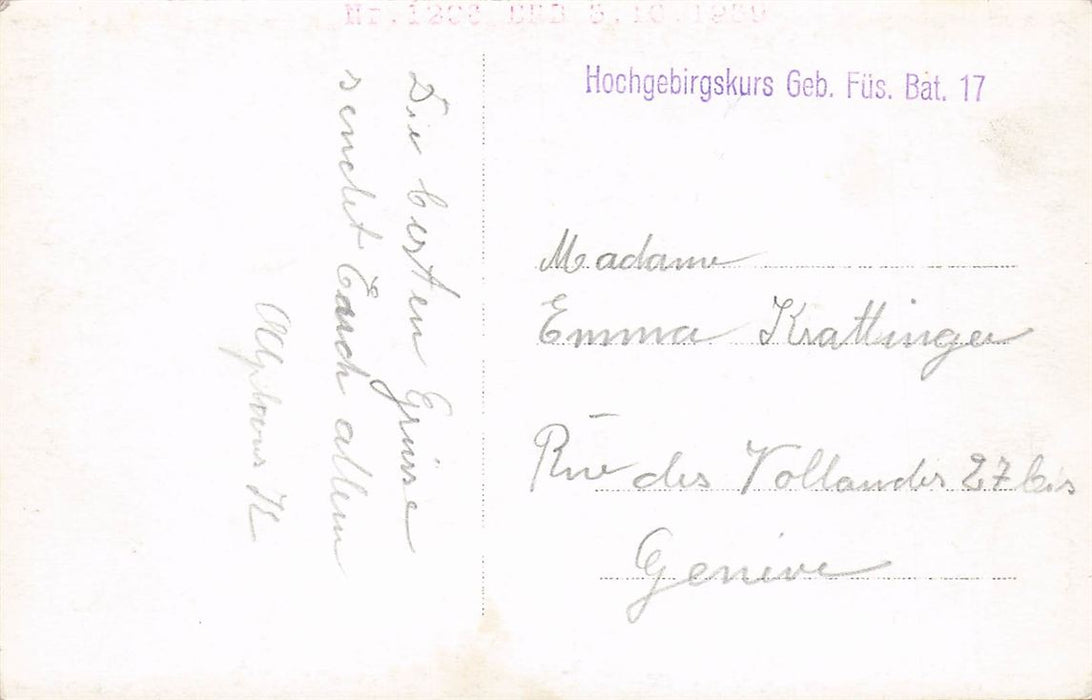 Nr. 1203 BRB 3.10.1939
Hochgebirgskurs Geb. Füs. Bat. 17
Die besten Grüsse
sendet Euch allen
Alphons K
Madame
Emma Krattinger
Rue des Vollandes 27 bis
Genève